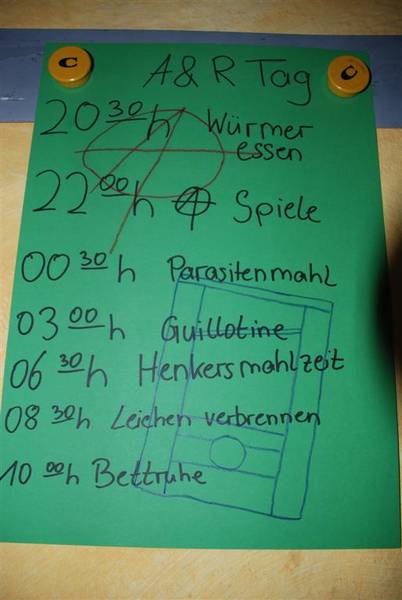 C C
A & R Tag
20 30 h Würmer
essen
22 00 h Ⓐ Spiele
00 30 h Parasitenmahl
03 00 h Guillotine
06 30 h Henkersmahlzeit
08 30 h Leichen verbrennen
10 00 h Bettruhe